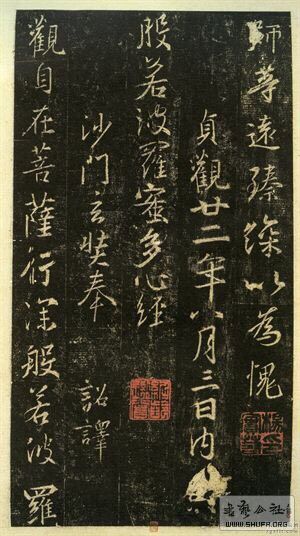 師等遠臻深以為愧
貞觀廿二年八月三日內
般若波羅蜜多心經
沙門玄奘奉 詔譯
觀自在菩薩行深般若波羅
書藝公社
WWW.SHUFA.ORG